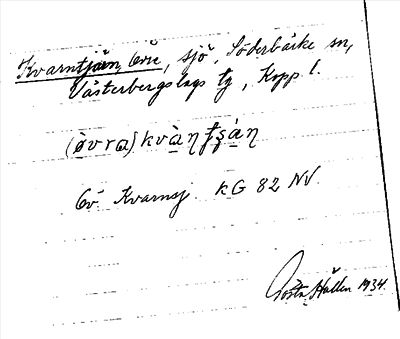 Kvarntjärn, Övre, sjö, Söderbärke sn,
Västerbergslags tg, Kopp. l.
(òvra) kvàṇtʂáṇ
Öv. Kvarnsj. KG 82 NV.
Gösta Hallén 1934.